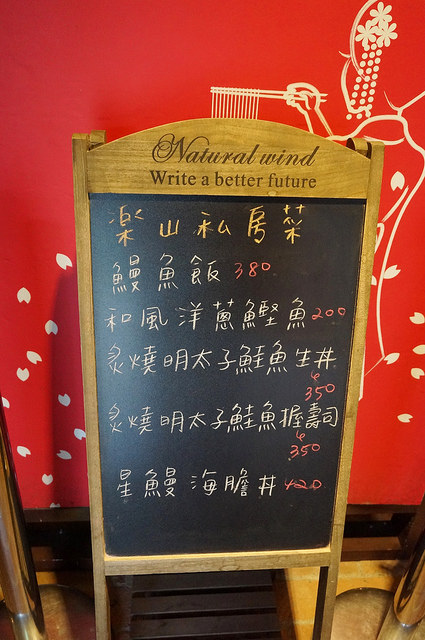 Natural wind
Write a better future
楽山私房菜
鰻魚飯 380
和風洋蔥鰹魚 200
炙燒明太子鮭魚生丼
350
炙燒明太子鮭魚握壽司
350
星鰻海膽丼 420